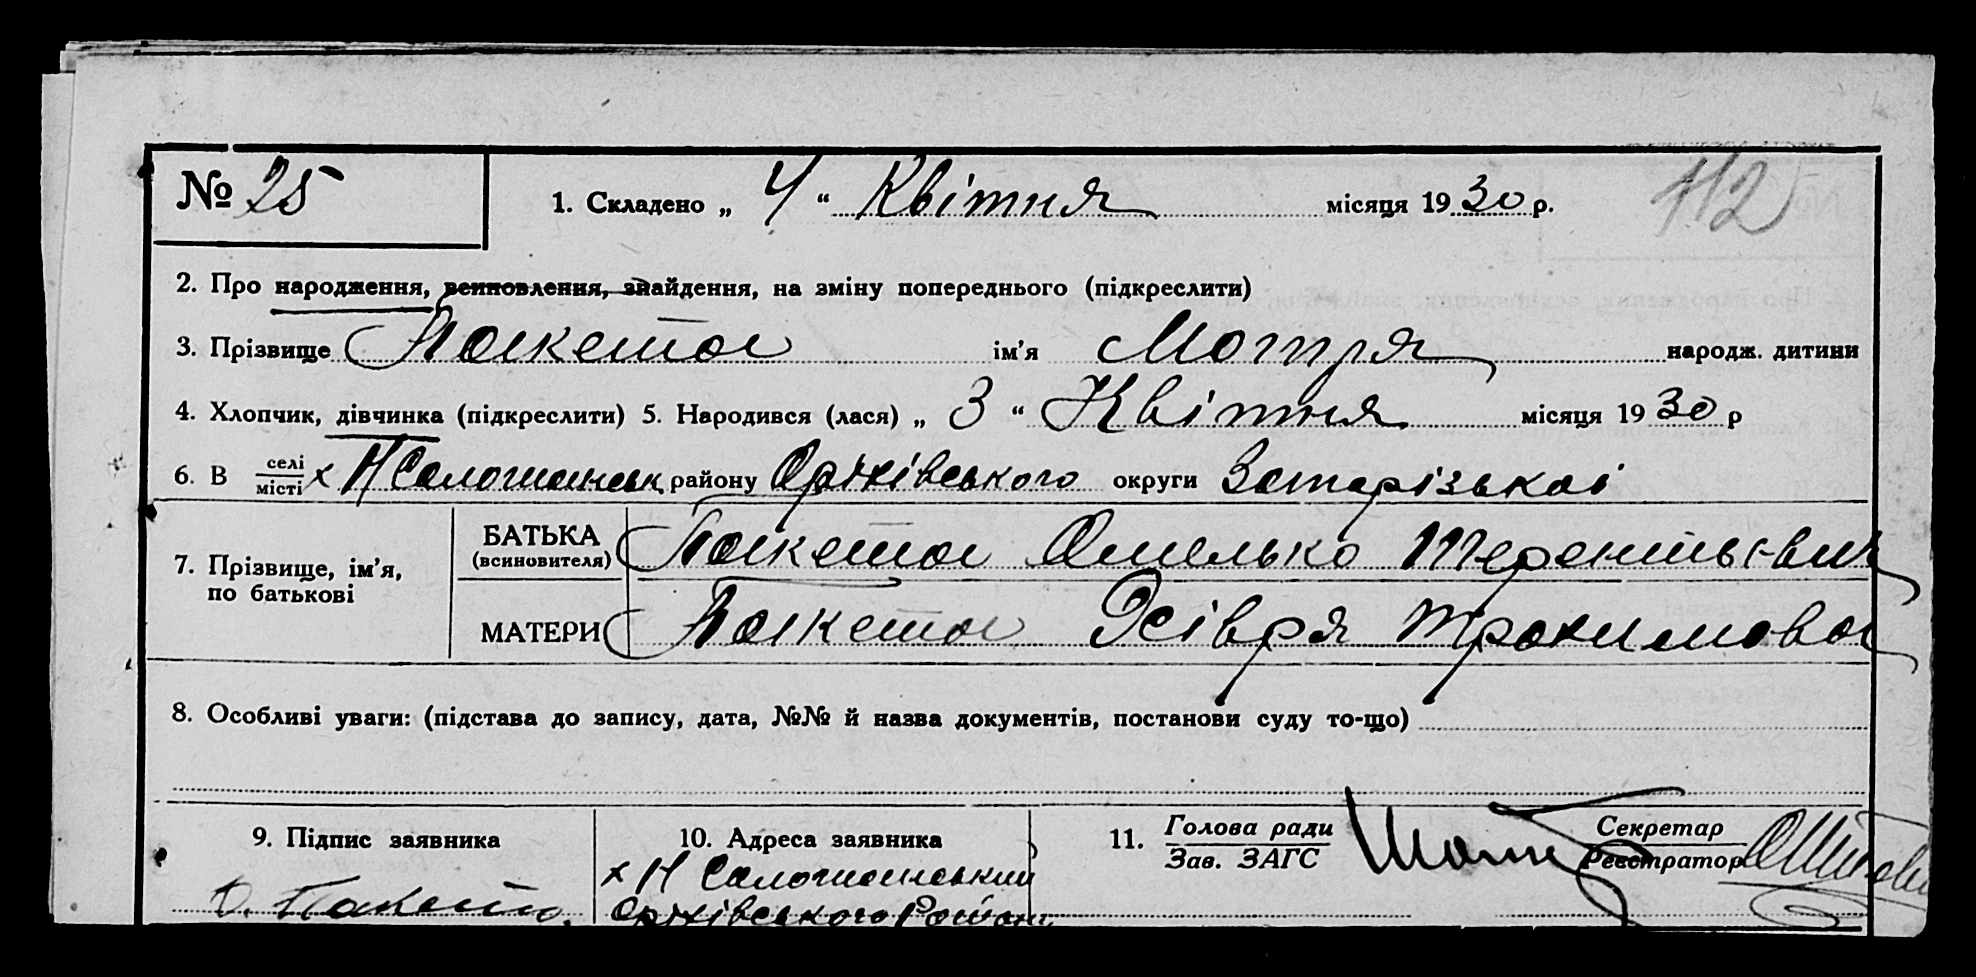 № 25 1. Складено „ 4 “ Квітня місяця 1930 р. 112
2. Про народження, всиновлення, знайдення, на зміну попереднього (підкреслити)
3. Прізвище Пакета ім'я Мотря народж. дитини
4. Хлопчик, дівчинка (підкреслити) 5. Народився (лася) „ 3 “ Квітня місяця 1930 р
6. В селі місті х Н району Оріхівського округи Запорізької
7. Прізвище, ім'я, по батькові
БАТЬКА (всиновителя) Пакета Омелько Терентьєвич
МАТЕРИ Пакета Трохимова
8. Особливі уваги: (підстава до запису, дата, №№ й назва документів, постанови суду то-що)
9. Підпис заявника 10. Адреса заявника 11. Голова ради Зав. ЗАГС Секретар Реєстратор
х Н
О. Пакета Оріхівського Району